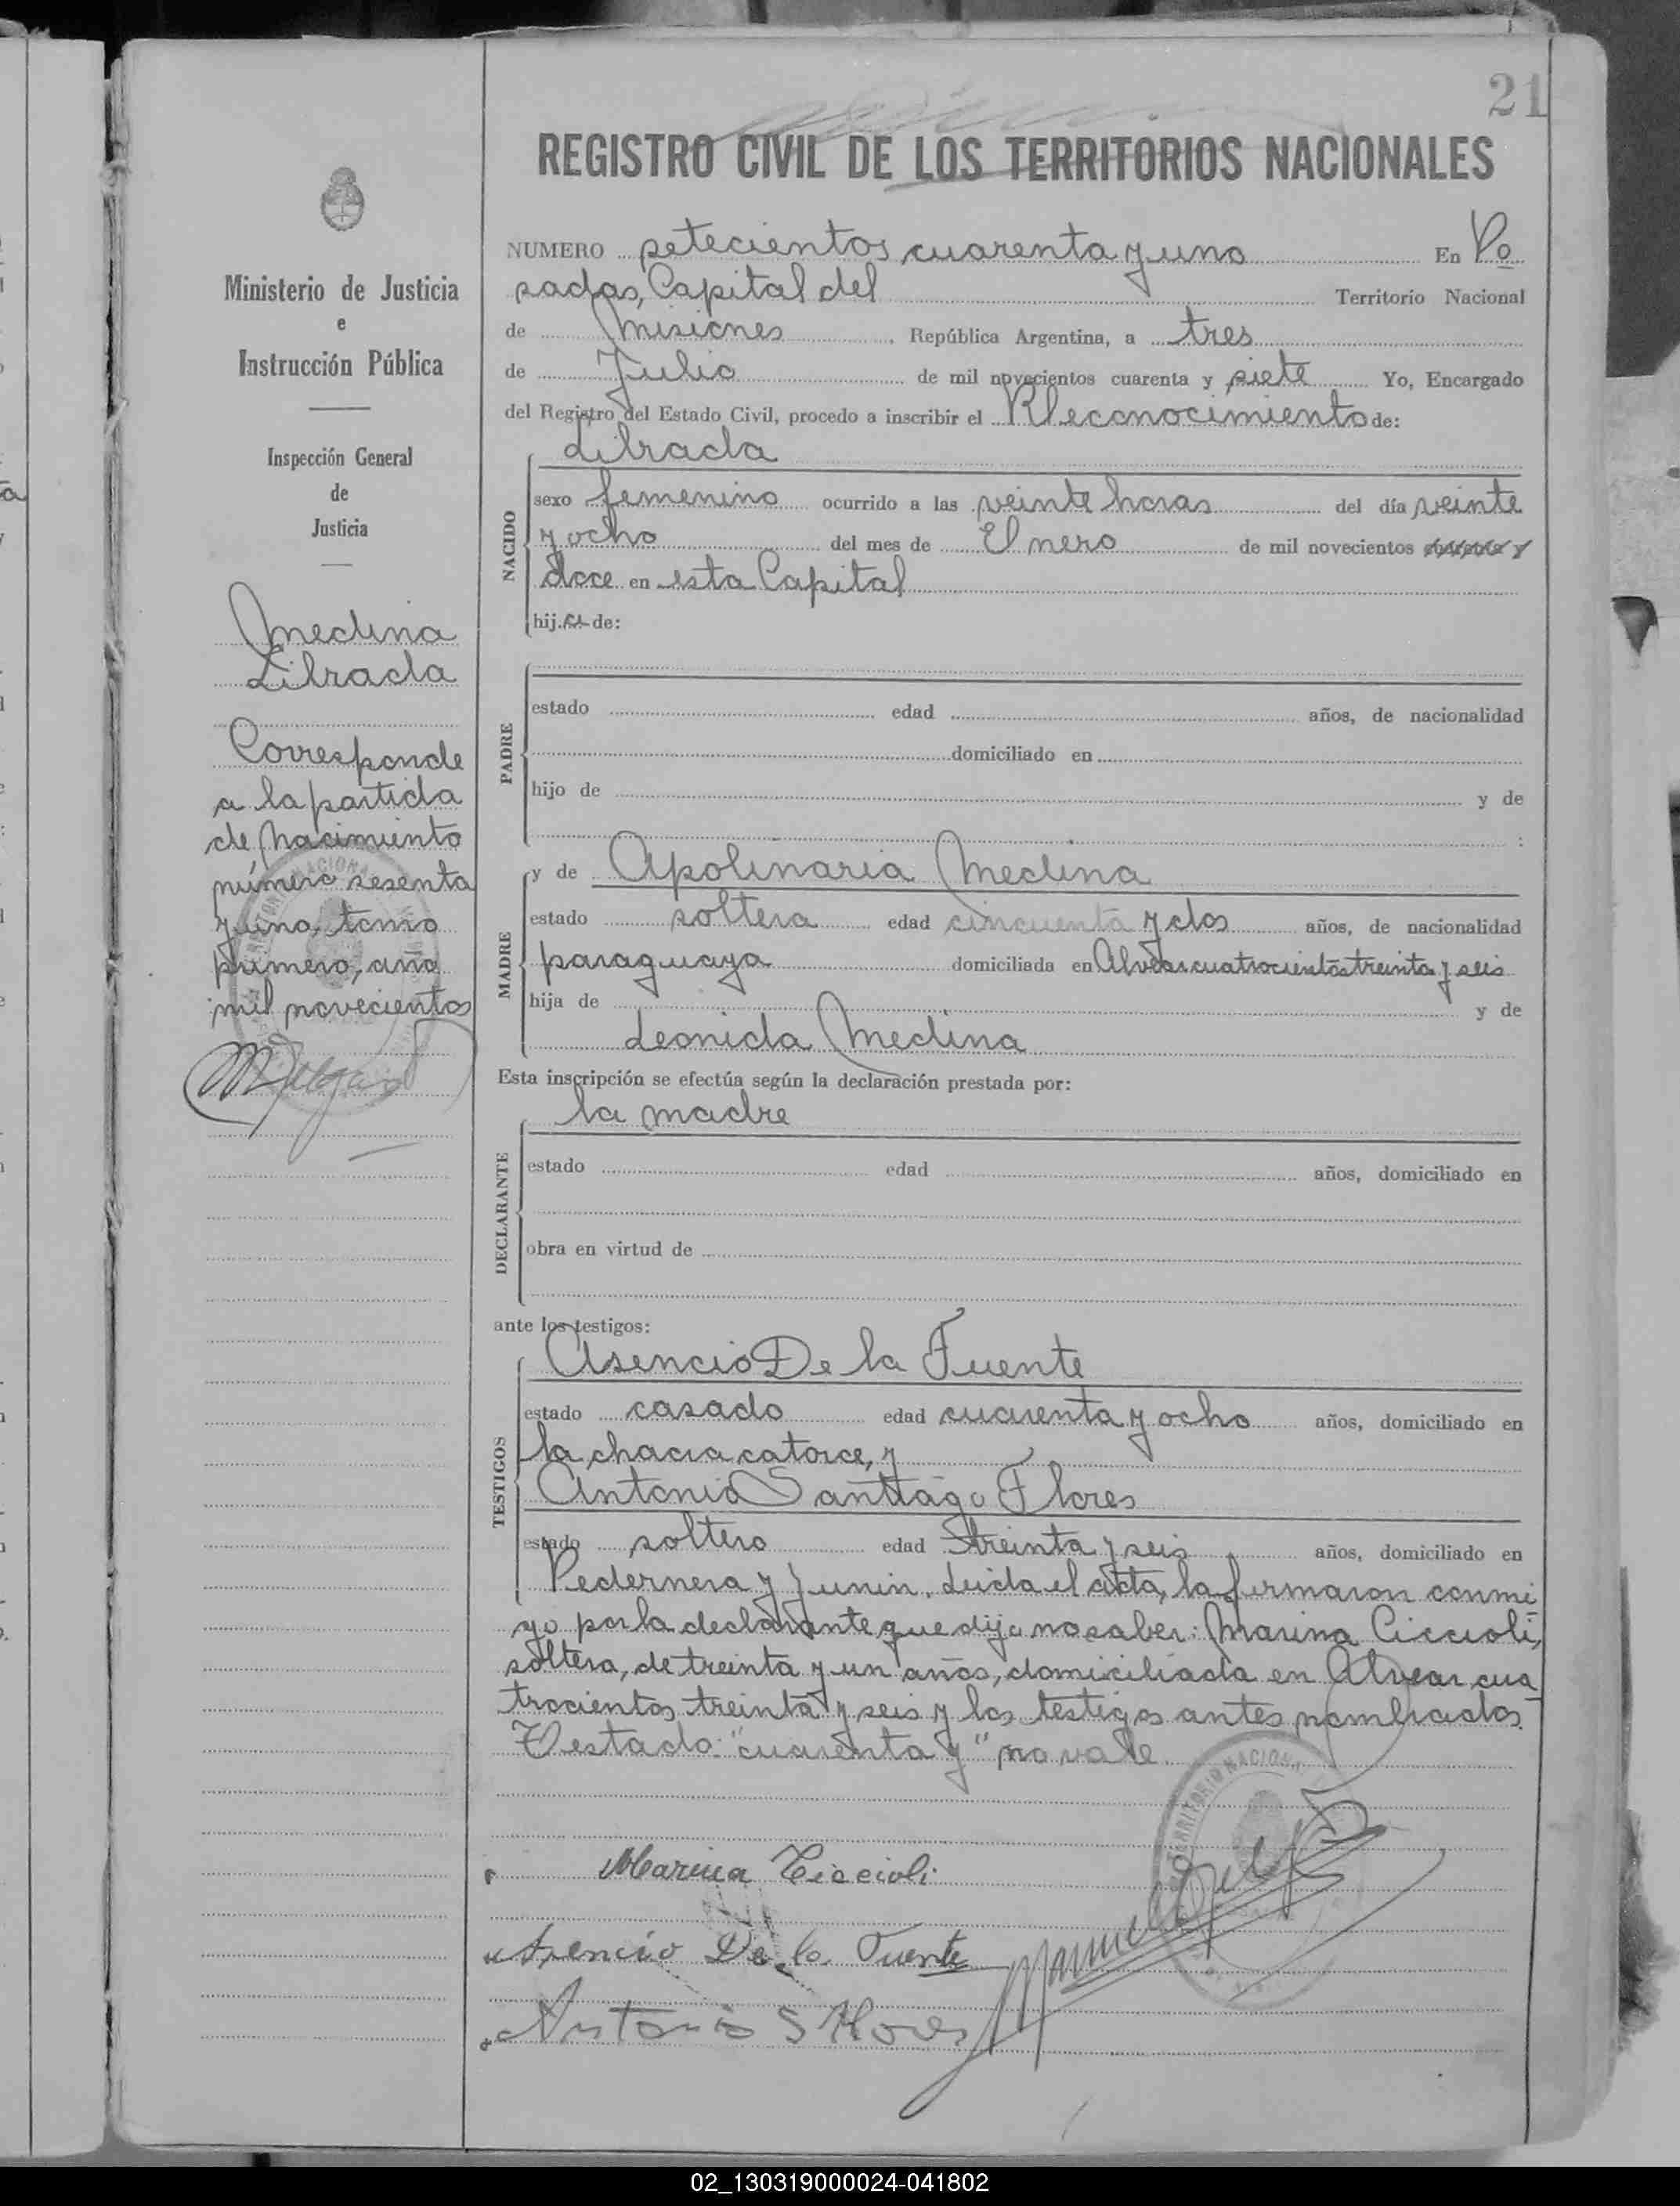 21
REGISTRO CIVIL DE LOS TERRITORIOS NACIONALES
Ministerio de Justicia
e
Instrucción Pública
Inspección General
de
Justicia
Medina
Librada
Corresponde
a la partida
de Nacimiento
número sesenta
y uno, tomo
primero, año
mil novecientos
NUMERO setecientos cuarenta y uno En Po
sadas, Capital del Territorio Nacional
de Misiones, República Argentina, a tres
de Julio de mil novecientos cuarenta y siete Yo, Encargado
del Registro del Estado Civil, procedo a inscribir el Reconocimiento de:
NACIDO
Librada
sexo femenino ocurrido a las veinte horas del día veinte
y ocho del mes de Enero de mil novecientos cuarenta y
doce en esta Capital
hija de:
PADRE
estado edad años, de nacionalidad
domiciliado en
hijo de y de
:
MADRE
y de Apolinaria Medina
estado soltera edad cincuenta y dos años, de nacionalidad
paraguaya domiciliada en Alvear cuatrocientos treinta y seis
hija de y de
Leonida Medina
Esta inscripción se efectúa según la declaración prestada por:
DECLARANTE
la madre
estado edad años, domiciliado en
obra en virtud de
ante los testigos:
TESTIGOS
Asencio De la Fuente
estado casado edad cuarenta y ocho años, domiciliado en
la chacra catorce, y
Antonio Santiago Flores
estado soltero edad treinta y seis años, domiciliado en
Pedernera y Junin. Leida el acta, la firmaron conmi
go por la declarante que dijo no saber: Marina Ciccioli,
soltera, de treinta y un años, domiciliada en Alvear cua
trocientos treinta y seis y los testigos antes nombrados.
Testado: "cuarenta y" no vale
TERRITORIO NACIONAL
Marina Ciccioli
Asencio De la Fuente
Antonio S Flores
02_130319000024-041802